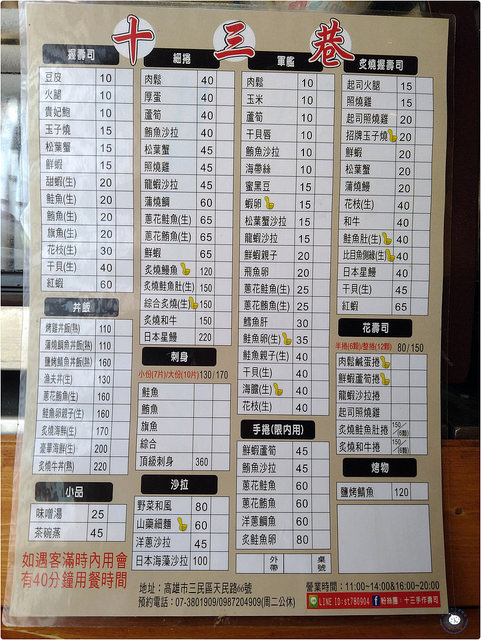 十三巷
握壽司
豆皮 10
火腿 10
貴妃鮑 10
玉子燒 15
松葉蟹 15
鮮蝦 15
甜蝦(生) 20
鮭魚(生) 20
鮪魚(生) 20
旗魚(生) 20
花枝(生) 30
干貝(生) 40
紅蝦 60
丼飯
烤雞丼飯(熟) 110
蒲燒鯛魚丼飯(熟) 110
鹽烤鯖魚丼飯(熟) 160
漁夫丼(生) 130
蔥花鮪魚(生) 160
鮭魚卵親子(生) 160
炙燒海鮮(生) 170
豪華海鮮(生) 200
炙燒牛丼(熟) 220
小品
味噌湯 25
茶碗蒸 45
如遇客滿時內用會
有40分鐘用餐時間
細捲
肉鬆 40
厚蛋 40
蘆筍 40
鮪魚沙拉 40
松葉蟹 45
照燒雞 45
龍蝦沙拉 45
蒲燒鯛 60
蔥花鮭魚(生) 65
蔥花鮪魚(生) 65
鮮蝦 65
炙燒鰻魚 120
炙燒鮭魚肚(生) 150
綜合炙燒(生) 150
炙燒和牛 150
日本星鰻 220
刺身
小份(7片)/大份(10片) 130/170
鮭魚
鮪魚
旗魚
綜合
頂級刺身 360
沙拉
野菜和風 80
山藥細麵 60
洋蔥沙拉 45
日本海藻沙拉 100
軍艦
肉鬆 10
玉米 10
蘆筍 10
干貝唇 10
鮪魚沙拉 10
海帶絲 10
蜜黑豆 15
蝦卵 15
松葉蟹沙拉 15
龍蝦沙拉 15
鮮蝦親子 20
飛魚卵 20
蔥花鮭魚(生) 25
蔥花鮪魚(生) 25
鱈魚肝 30
鮭魚卵(生) 35
鮭魚親子(生) 40
干貝(生) 40
海膽(生) 40
花枝(生) 40
手捲(限內用)
鮮蝦蘆筍 45
鮪魚沙拉 45
蔥花鮭魚 60
蔥花鮪魚 60
洋蔥鯛魚 60
炙鮭魚卵 80
外帶 桌號
炙燒握壽司
起司火腿 15
照燒雞 15
起司照燒雞 20
招牌玉子燒 20
鮮蝦 20
松葉蟹 20
蒲燒鰻 20
花枝(生) 40
和牛 40
鮭魚肚(生) 40
比目魚側緣(生) 40
日本星鰻 40
干貝(生) 45
紅蝦 65
花壽司
半捲(6顆)/整捲(12顆) 80/150
肉鬆鹹蛋捲
鮮蝦蘆筍捲
龍蝦沙拉捲
起司照燒雞
炙燒鮭魚肚捲 150/(6顆)
炙燒和牛捲 150/(6顆)
烤物
鹽烤鯖魚 120
地址：高雄市三民區天民路66號
預約電話：07-3801909/0987204909(周二公休)
營業時間：11:00~14:00&16:00~20:00
LINE ID:st780904 粉絲團：十三手作壽司